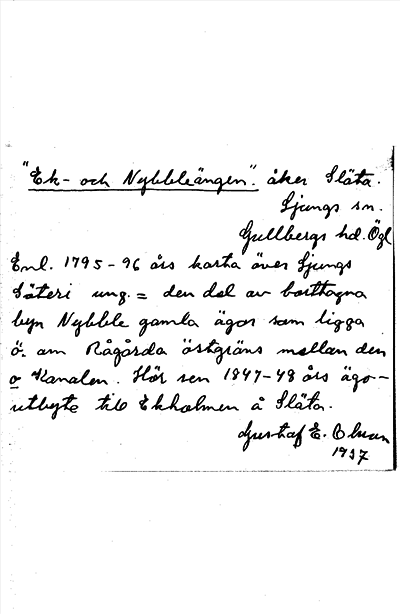 "Ek- och Nybbleängen". åker Släta.
Ljungs sn.
Gullbergs hd. Ögl
Enl. 1795-96 års karta över Ljungs
Säteri ung. = den del av borttagna
byn Nybble gamla ägor som ligga
ö. om Rågårda östgräns mellan den
o Kanalen. Hör sen 1847-48 års ägo-
utbyte till Ekholmen å Släta.
Gustaf E. Olsson
1937